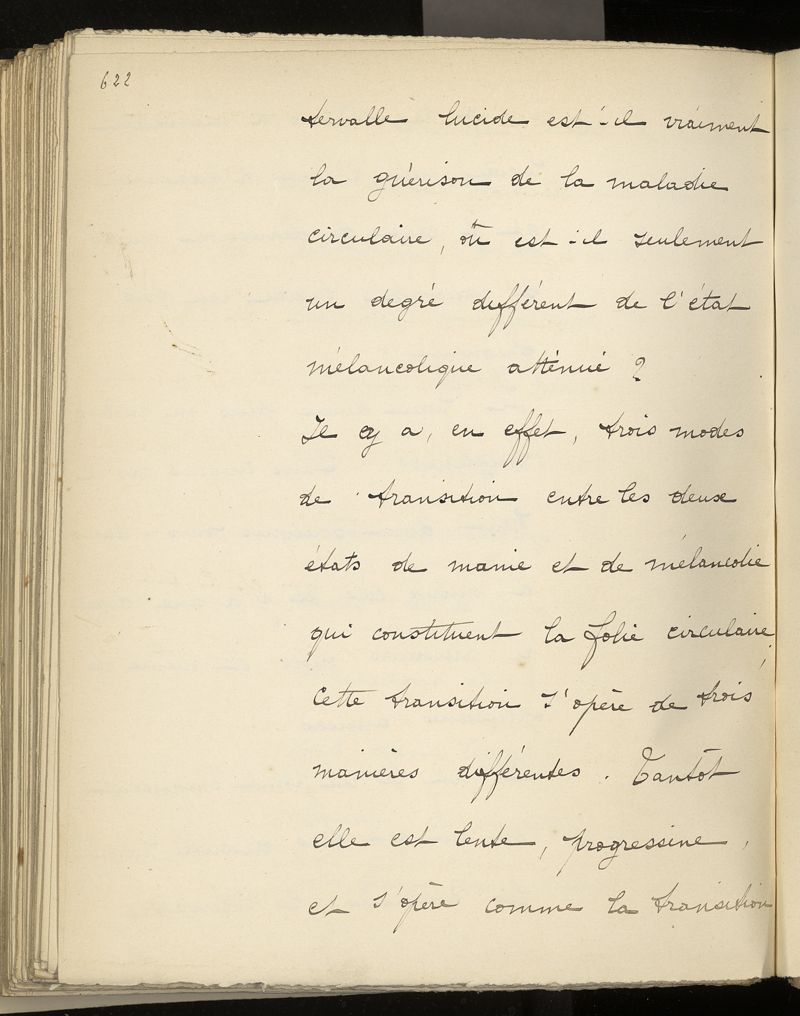 622
tervalle lucide est-il vraiment
la guérison de la maladie
circulaire, ou est-il seulement
un degré différent de l'état
mélancolique atténué ?
Il y a, en effet, trois modes
de transition entre les deux
états de manie et de mélancolie
qui constituent la folie circulaire.
Cette transition s'opère de trois
manières différentes. Tantôt
elle est lente, progressive,
et s'opère comme la transition